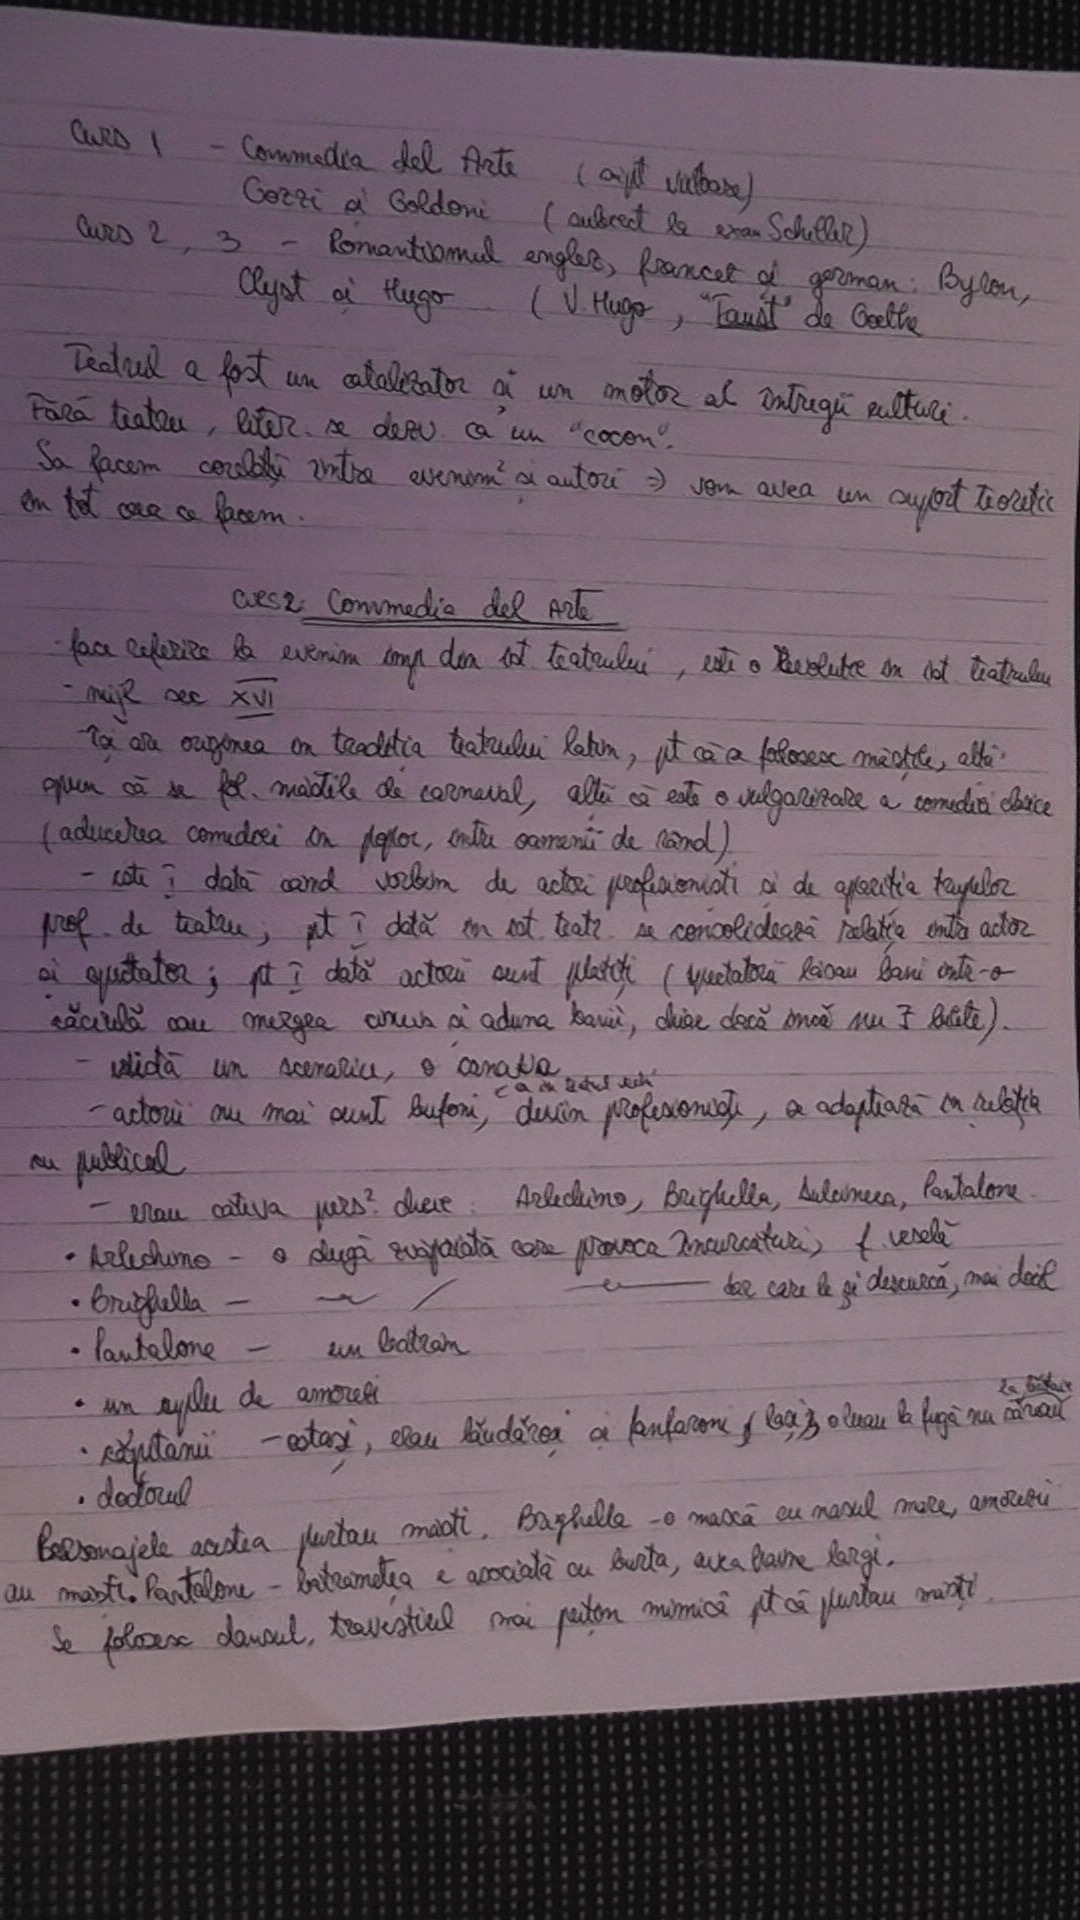 Curs 1 - Commedia del Arte (
Gozzi și Goldoni (subiect la exam Schiller)
Curs 2, 3 - Romantismul englez, francez și german: Byron,
Clyst și Hugo (V. Hugo, "Faust" de Goethe
Teatrul a fost un catalizator și un motor al întregii culturi.
Fără teatru, liter. se dezv ca un "cocon".
Sa facem corelații între evenim² și autori => vom avea un suport teoretic
în tot ceea ce facem.
Curs 2: Commedia del Arte
- face referire la evenim imp din ist teatrului, este o Revoluție în ist teatrului
- mijl sec XVI
își are originea în tradiția teatrului latin, pt că se folosesc măștile, alții
spun că se fol. măștile de carnaval, alții că este o vulgarizare a comediei clasice
(aducerea comediei în popor, între oamenii de rând)
- este I dată când vorbim de actori profesioniști și de apariția trupelor
prof. de teatru; pt I dată în ist. teatr. se consolidează relația între actor
și spectator; pt I dată actorii sunt plătiți (spectatorii lăsau bani într-o
căciulă sau mergea cineva și aduna banii, chiar dacă încă nu Ǝ bilete).
- există un scenariu, o canava
- actorii nu mai sunt bufoni, devin profesioniști, se adaptează în relația
cu publicul
- erau câtiva pers² cheie: Arlechino, Brighella, Dulcineea, Pantalone.
• Arlechino - o slugă zvăpăiată care provoca încurcături, f. veselă
• Brighella - dar care le și descurcă, mai docil
• Pantalone - un batrân
• un cuplu de amorezi
• căpitanii - ostași, erau lăudăroși și fanfaroni, lași, o luau la fugă nu săreau la bătaie
• doctorul
Personajele acestea purtau măști. Baghella - o mască cu nasul mare, amorezii
au măști. Pantalone - batrânețea e asociată cu burta, avea haine largi.
Se folosesc dansul, travestiul mai puțin mimică pt că purtau măști.